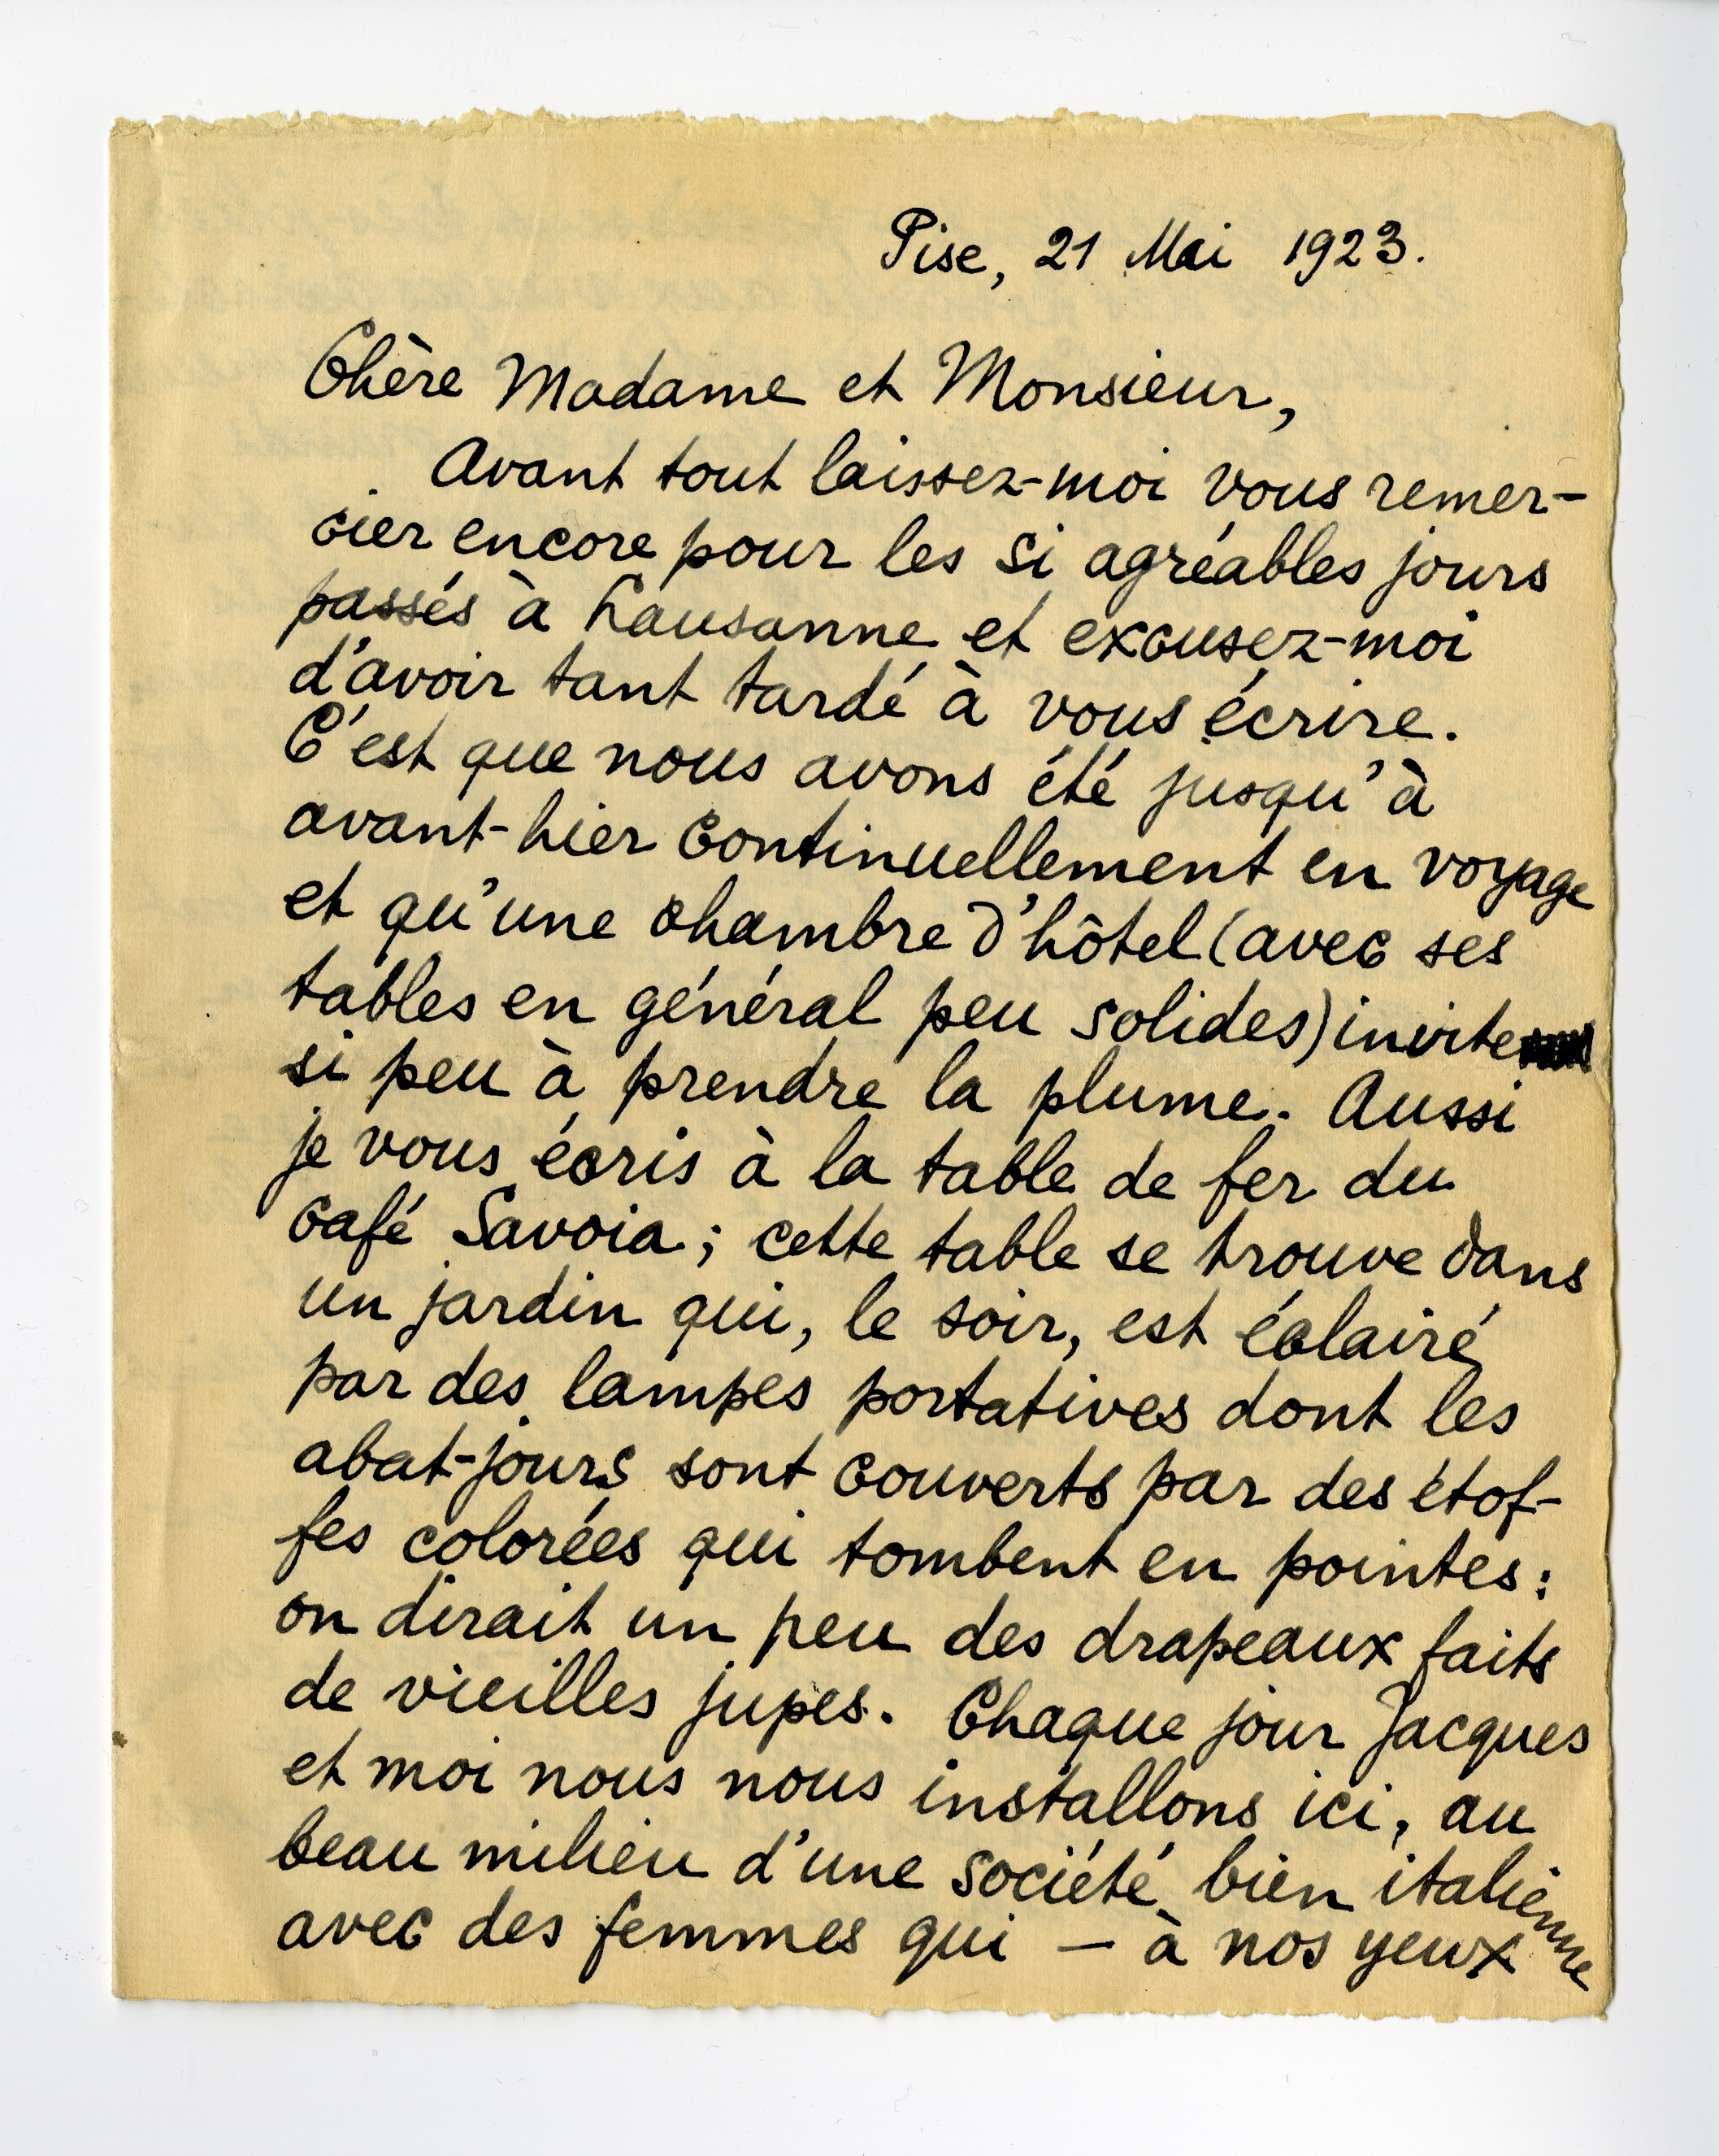 Pise, 21 Mai 1923.
Chère Madame et Monsieur,
Avant tout laissez-moi vous remer-
cier encore pour les si agréables jours
passés à Lausanne et excusez-moi
d'avoir tant tardé à vous écrire.
C'est que nous avons été jusqu'à
avant-hier continuellement en voyage
et qu'une chambre d'hôtel (avec ses
tables en général peu solides) invite
si peu à prendre la plume. Aussi
je vous écris à la table de fer du
café Savoia ; cette table se trouve dans
un jardin qui, le soir, est éclairé
par des lampes portatives dont les
abat-jours sont couverts par des étof-
fes colorées qui tombent en pointes :
on dirait un peu des drapeaux faits
de vieilles jupes. Chaque jour Jacques
et moi nous nous installons ici, au
beau milieu d'une société bien italienne
avec des femmes qui — à nos yeux